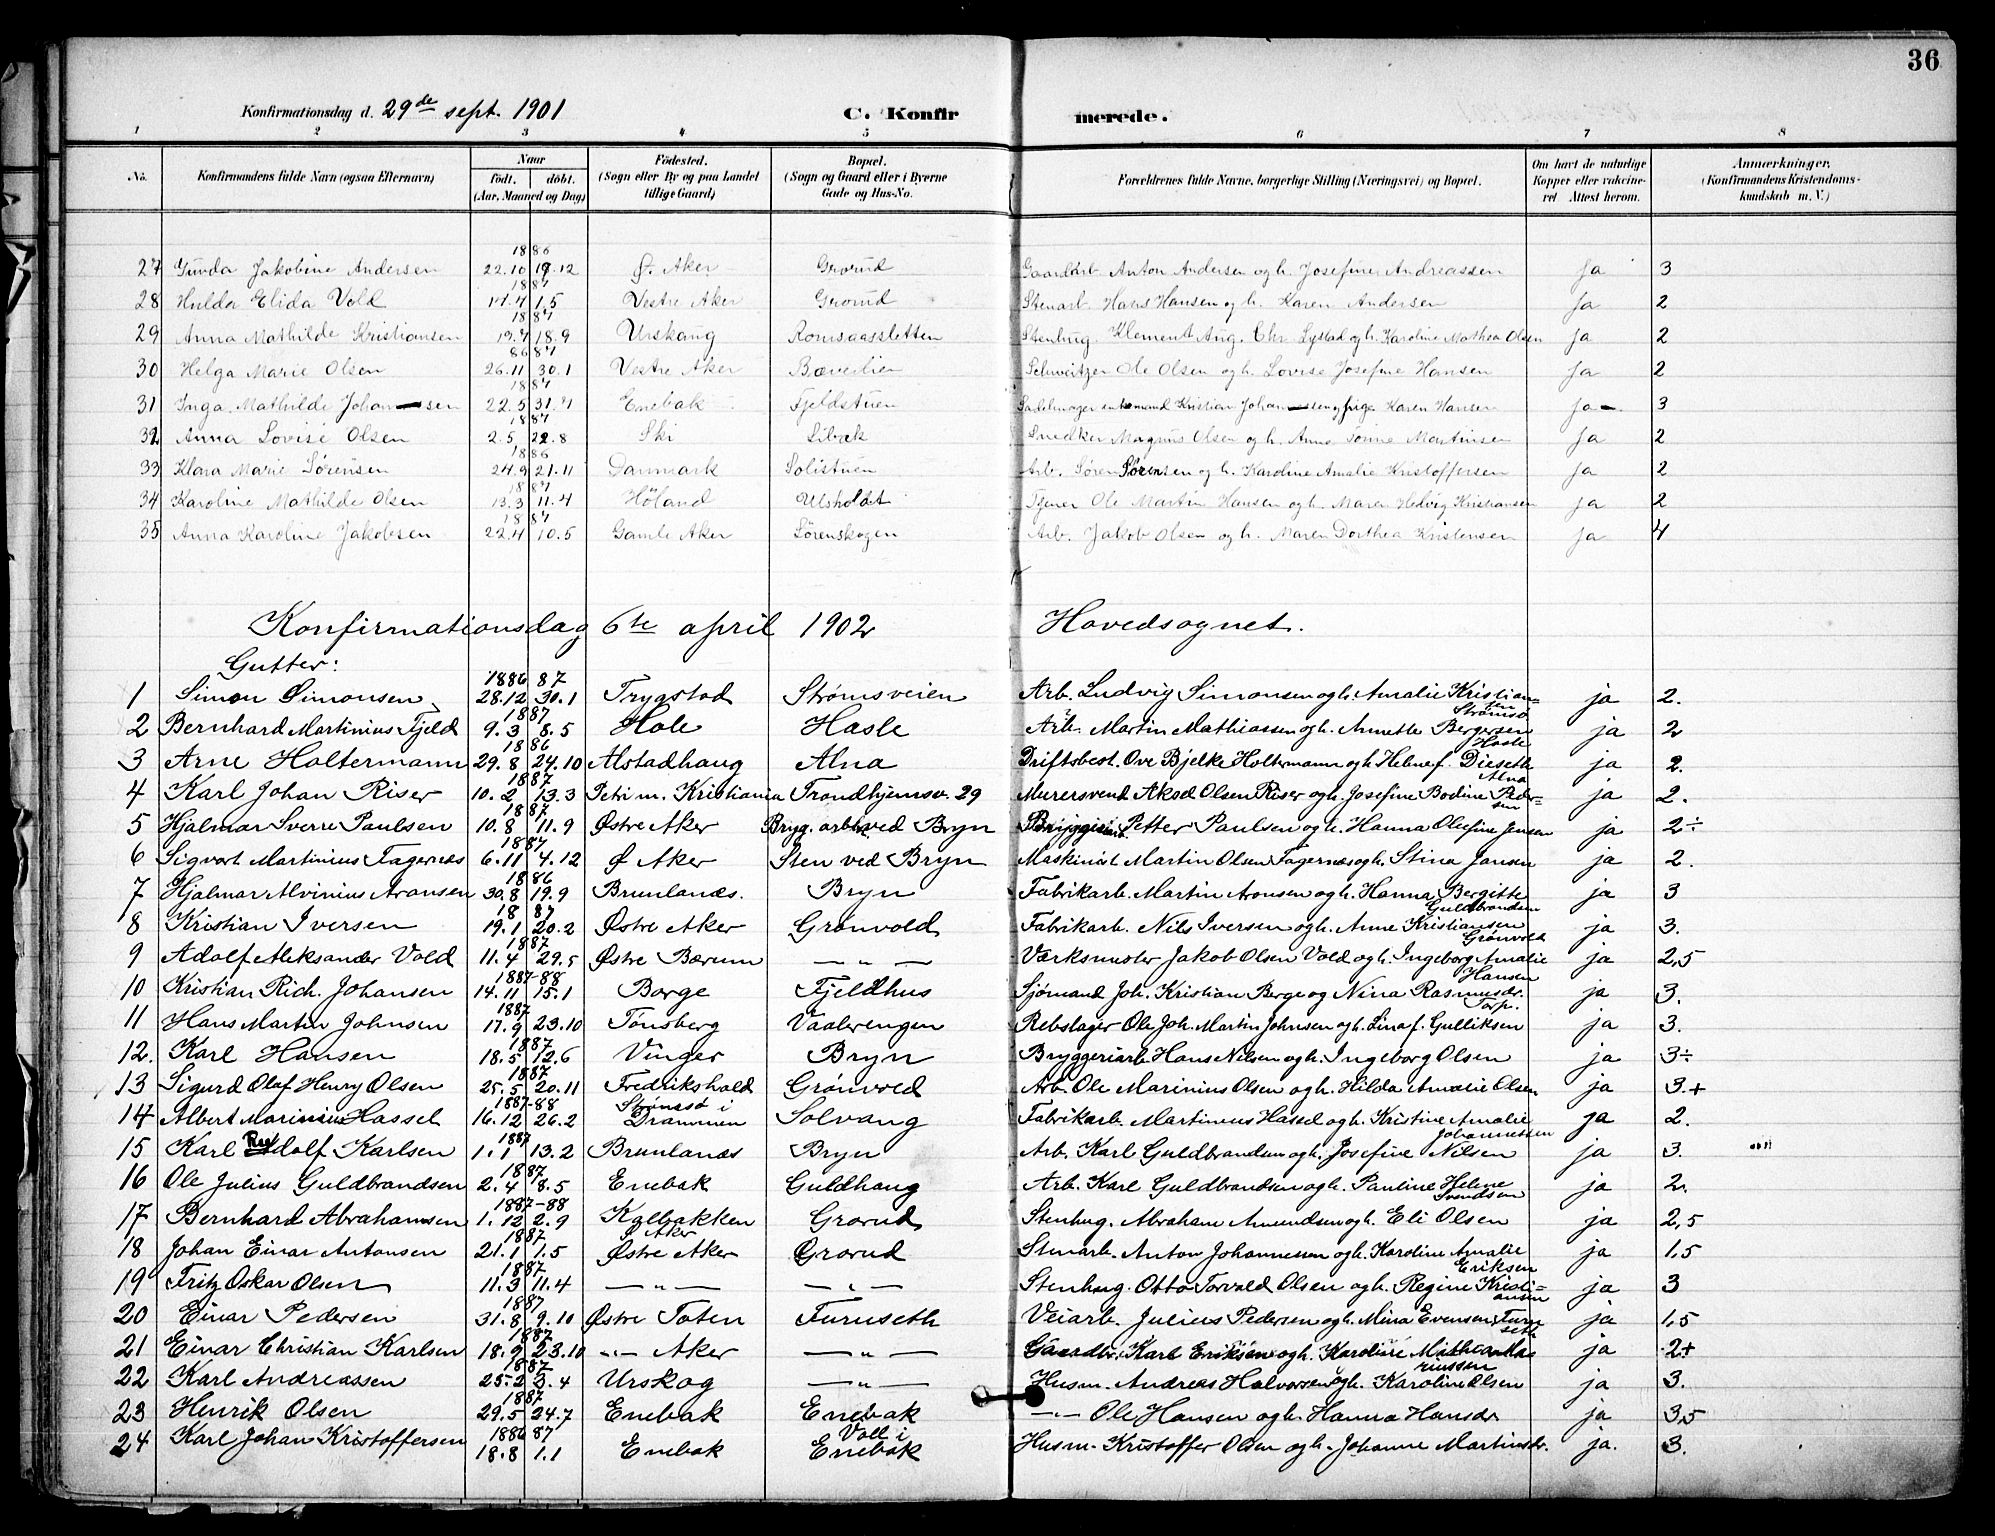 36
Konfirmationsdag d. 29de sept. 1901 C. Konfirmerede.
1 2 3 4 5 6 7 8
No. Konfirmandens fulde Navn (ogsaa Efternavn) Naar født. døbt. (Aar, Maaned og Dag) Fødested. (Sogn eller By og paa Landet tillige Gaard) Bopæl. (Sogn og Gaard eller i Byerne Gade og Hus-No. Forældrenes fulde Navne, borgerlige Stilling (Næringsvei) og Bopæl. Om havt de naturlige Kopper eller vakcineret Attest herom. Anmærkninger. (Konfirmandens Kristendomskundskab m. V.)
1886
27 Gunda Jakobine Andersen 22.10 19.12 Ø. Aker Grorud Gaardarb. Anton Andersen og h. Josefine Andreassen Ja 3
1887
28 Hulda Elida Vold 14.4 1.5 Vestre Aker Grorud Stenarb. Hans Hansen og h. Karen Andersen Ja 2
1887
29 Anna Mathilde Kristiansen 19.7 18.9 Urskaug Romsaassletten Stenhug. Klement Aug. Chr. Lystad og h. Karoline Mathea Olsen Ja 2
86 87
30 Helga Marie Olsen 26.11 30.1 Vestre Aker Bæveilien Schweitzer Ole Olsen og h. Lovise Josefine Hansen Ja 2
1887
31 Inga Mathilde Johansen 22.5 31.7 Enebak Fjeldstuen Sadelmager enkemand Kristian Johansen og pige Karen Hansen Ja 3
1887
32 Anna Lovise Olsen 2.5 22.8 Ski Libæk Snedker Magnus Olsen og h. Anna Tonne Martinsen Ja 2
1886
33 Klara Marie Sørensen 24.9 21.11 Danmark Solistuen Arb. Søren Sørensen og h. Karoline Amalie Kristoffersen Ja 2
1887
34 Karoline Mathilde Olsen 13.3 11.4 Høland Ulsholdt Tjener Ole Martin Hansen og h. Maren Hedvig Kristiansen Ja 2
1887
35 Anna Karoline Jakobsen 22.4 10.5 Gamle Aker Sørenskogen Arb. Jakob Olsen og h. Maren Dorthea Kristensen Ja 4
Konfirmationsdag 6te april 1902 Hovedsognet.
Gutter:
1886 87
1 Simon Simonsen 28.12 30.1 Trygstad Strømsveien Arb. Ludvig Simonsen og h. Amalie Kristiansen Strømsø ja 2.
1887
2 Bernhard Martinius Fjeld 9.3 8.5 Hole Hasle Arb. Martin Mathiassen og h. Annette Bergersen Hasle ja 2
1886
3 Arne Holtermann 29.8 24.10 Alstadhaug Alna Driftsbest. Ove Bjelke Holtermann og h. Helene f. Dieseth Alna ja 2.
1887
4 Karl Johan Riser 10.2 13.3 Petri m. Kristiania Trondhjemsv. 29 Murersvend Aksel Olsen Riser og h. Josefine Bodine Pedersen ja 2.
1887
5 Hjalmar Sverre Paulsen 10.8 11.9 Østre Aker Bryg. arb. ved Bryn Bryggeriarb. Petter Paulsen og h. Hanna Olefine Jensen ja 2÷
1887
6 Sigvart Martinius Fagernæs 6.11 4.12 Ø Aker Sten ved Bryn Maskinist Martin Olsen Fagernæs og h. Stina Jansen ja 2.
1886
7 Hjalmar Alvinius Aronsen 30.8 19.9 Brunlanæs. Bryn Fabrikarb. Martin Aronsen og h. Hanna Bergitte Guldbrandsen ja 3
1887
8 Kristian Iversen 19.1 20.2 Østre Aker Grønvold Fabrikarb. Nils Iversen og h. Anne Kristiansen Grønvold ja 3.
1887
9 Adolf Aleksander Vold 11.4 29.5 Østre Bærum — „ — Værksmester Jakob Olsen Vold og h. Ingeborg Amalie Hansen ja 2,5
1887-88
10 Kristian Rich. Johansen 14.11 15.1 Borge Fjeldhus Sjømand Joh. Kristian Berge og Nina Rasmusdr. Torp. ja 3.
1887
11 Hans Martin Johnsen 17.9 23.10 Tønsberg Vaalerengen Rebslager Ole Joh. Martin Johnsen og h. Lina f. Gulliksen ja 3.
1887
12. Karl Hansen 18.5 12.6 Vinger Bryn Bryggeriarb. Hans Nilsen og h. Ingeborg Olsen ja 3÷
1887
13 Sigurd Olaf Henry Olsen 25.5 20.11 Fredrikshald Grønvold Arb. Ole Marinius Olsen og h. Hilda Amalie Olsen ja 3.+
1887-88
14 Albert Marinius Hassel 16.12 26.2 Strømsø i Drammen Solvang Fabrikarb. Martinus Hassel og h. Kristine Amalie Johannessen ja 2.
1887
15 Karl Rudolf Karlsen 1.1 13.2 Brunlanæs Bryn Arb. Karl Guldbrandsen og h. Josefine Nilsen ja 3.
1887
16 Ole Julius Guldbrandsen 2.4 8.5 Enebak Guldhaug Arb. Karl Guldbrandsen og h. Pauline Helene Svendsen ja 2.
1887-88
17 Bernhard Abrahamsen 1.12 2.9 Kalbakken Ø Aker Grorud Stenhug. Abraham Amundsen og h. Eli Olsen ja 2,5
1887
18 Johan Einar Antonsen 21.1 1.5 Østre Aker Grorud Stenarb. Anton Johannessen og h. Karoline Amalie Eriksen ja 1,5
1887
19 Fritz Oskar Olsen 11.3 11.4 — „ — — „ — Stenhug. Otto Torvald Olsen og h. Regine Kristiansen ja 3
1887
20 Einar Pedersen 31.8 9.10 Østre Toten Furuseth Veiarb. Julius Pedersen og h. Mina Evensen, Furuseth ja 1,5
1887
21 Einar Christian Karlsen 18.9 23.10 -„- Aker — „ — Gaardbr. Karl Eriksen og h. Karoline Mathea Mariussen ja 2+
1887
22 Karl Andreassen 25.2 3.4 Urskog — „ — Husm. Andreas Halvorsen og h. Karoline Olsen ja 3.
1887
23 Henrik Olsen 29.5 24.7 Enebak Enebak —„— Ole Hansen og h. Hanna Hansdr. ja 3,5
1886 87
24 Karl Johan Kristoffersen 18.8 1.1 Enebak Voll i Enebak Husm. Kristoffer Olsen og h. Johanne Martinsdr. ja. 3.